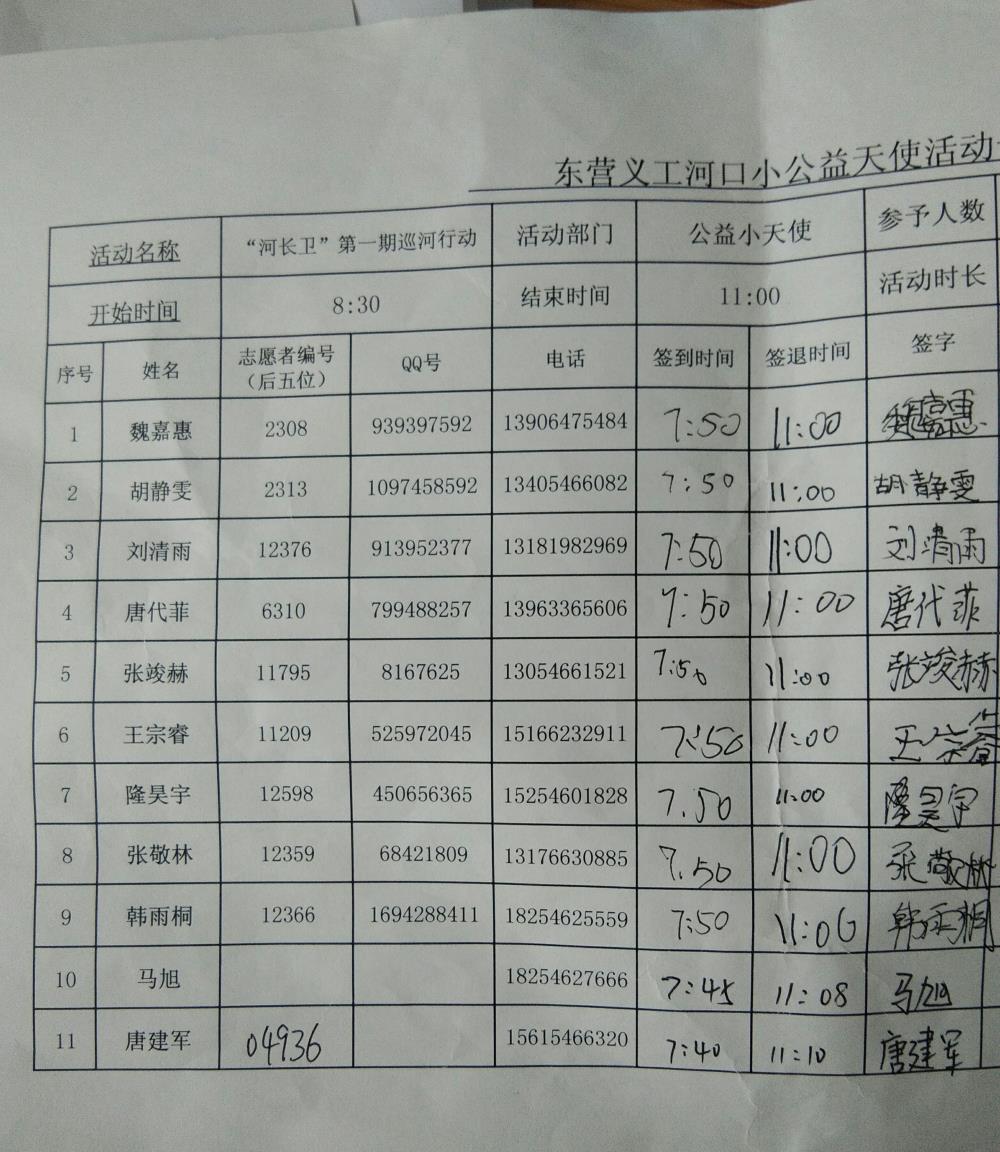 东营义工河口小公益天使活动
活动名称 “河长卫”第一期巡河行动 活动部门 公益小天使 参予人数
开始时间 8:30 结束时间 11:00 活动时长
序号 姓名 志愿者编号（后五位） QQ号 电话 签到时间 签退时间 签字
1 魏嘉惠 2308 939397592 13906475484 7:50 11:00 魏嘉惠
2 胡静雯 2313 1097458592 13405466082 7:50 11:00 胡静雯
3 刘清雨 12376 913952377 13181982969 7:50 11:00 刘清雨
4 唐代菲 6310 799488257 13963365606 7:50 11:00 唐代菲
5 张竣赫 11795 8167625 13054661521 7:50 11:00 张竣赫
6 王宗睿 11209 525972045 15166232911 7:50 11:00 王宗睿
7 隆昊宇 12598 450656365 15254601828 7.50 11:00 隆昊宇
8 张敬林 12359 68421809 13176630885 7.50 11:00 张敬林
9 韩雨桐 12366 1694288411 18254625559 7:50 11:00 韩雨桐
10 马旭 18254627666 7:45 11:08 马旭
11 唐建军 04936 15615466320 7:40 11:10 唐建军